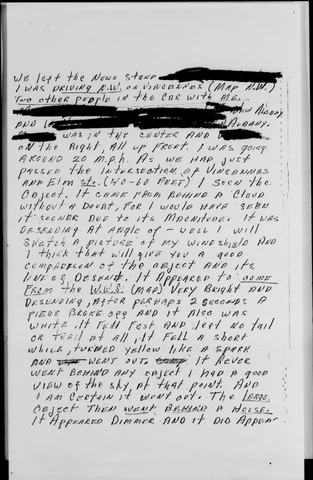 WE LEFT THE NEWS STAND
I WAS DRIVING N.W. ON VINCENNES (MAP N.W.)
TWO OTHER PEOPLE IN THE CAR WITH ME.
ALBANY
AND ALBANY.
WAS IN THE CENTER AND
ON THE RIGHT, ALL UP FRONT. I WAS GOING
AROUND 20 M.P.H. AS WE HAD JUST
PASSED THE INTERSECTION OF VINCENNES
AND ELM STS. (40-60 FEET) I SEEN THE
OBJECT. IT CAME FROM BEHIND A CLOUD
WITHOUT A DOUBT, FOR I WOULD HAVE SEEN
IT SOONER DUE TO ITS MAGNITUDE. IT WAS
DESENDING AT ANGLE OF - WELL I WILL
SKETCH A PICTURE OF MY WINDSHIELD AND
I THINK THAT WILL GIVE YOU A GOOD
COMPARISON OF THE OBJECT AND ITS
ANGLE OF DESENT. IT APPEARED TO COME
FROM THE W.S. (MAP) VERY BRIGHT AND
DESENDING, AFTER PERHAPS 2 SECONDS A
PIECE BROKE OFF AND IT ALSO WAS
WHITE. IT FELL FAST AND LEFT NO TAIL
OR TRAIL AT ALL, IT FELL A SHORT
WHILE, TURNED YELLOW LIKE A SPARK
AND WENT OUT IT NEVER
WENT BEHIND ANY OBJECT I HAD A GOOD
VIEW OF THE SKY, AT THAT POINT. AND
I AM CERTAIN IT WENT OUT. THE LARGE
OBJECT THEN WENT BEHIND A HOUSE.
IT APPEARED DIMMER AND IT DID APPEAR